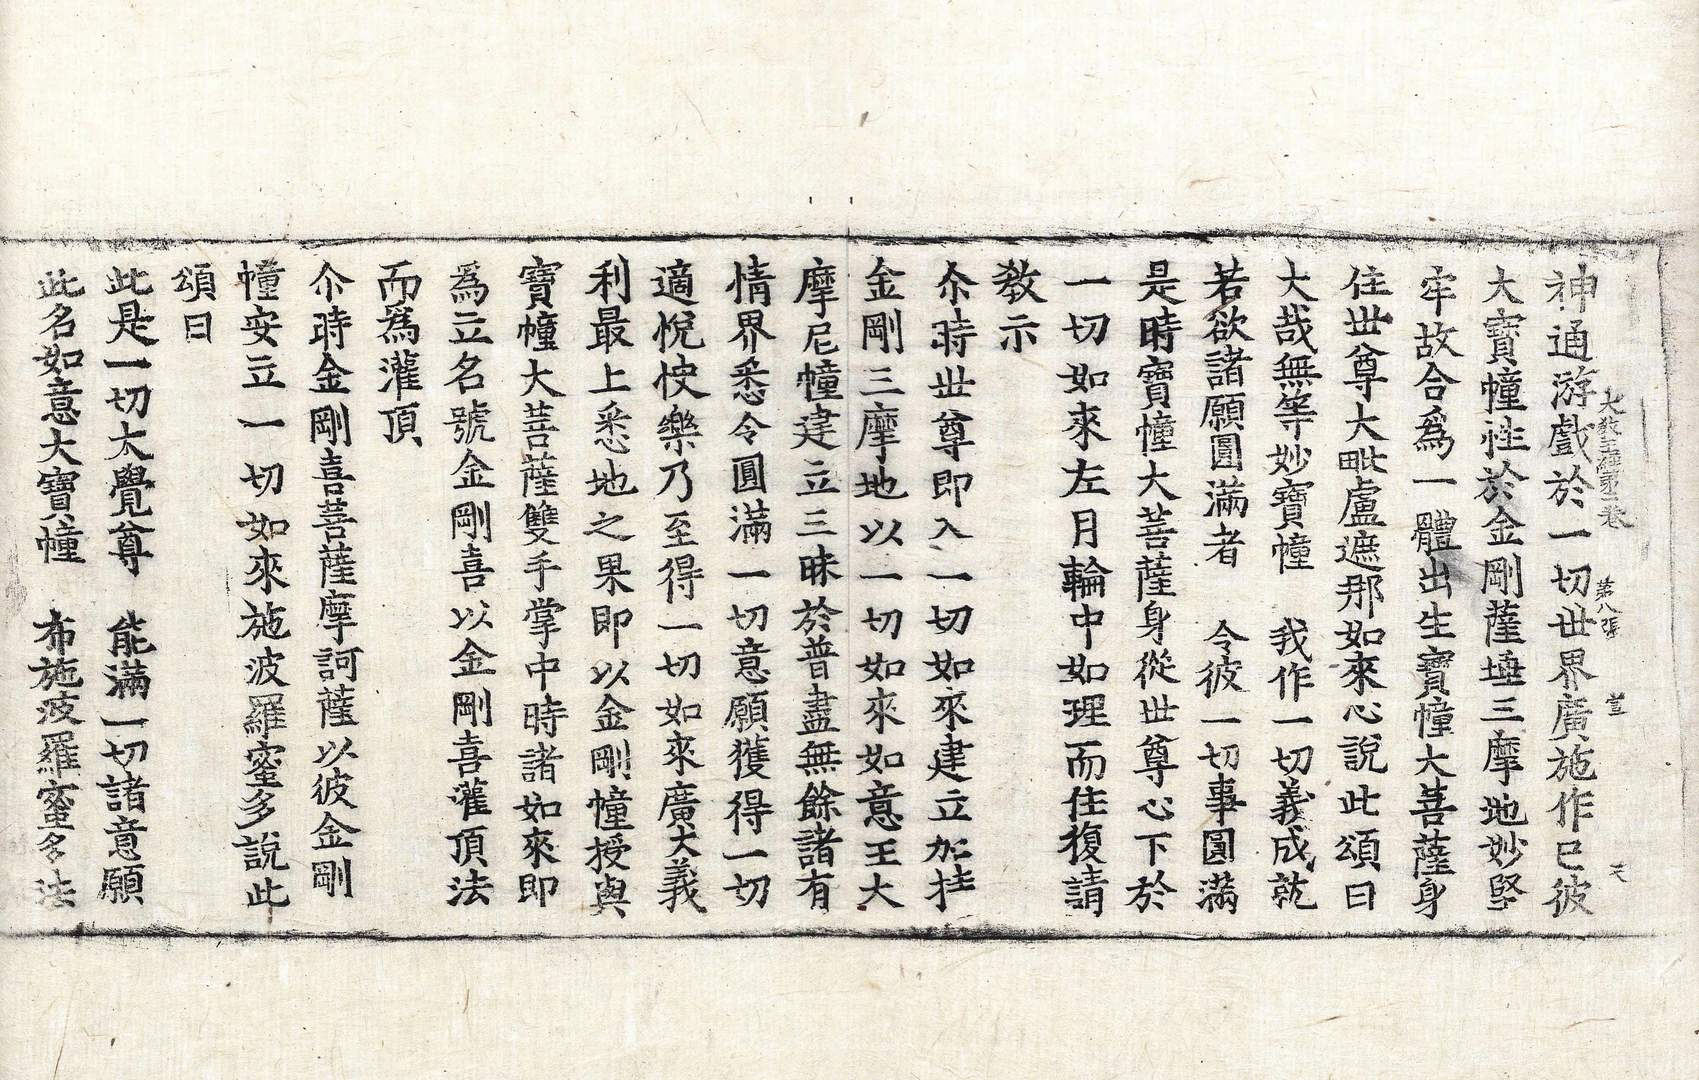 神通游戲於一切世界廣施作已彼
大寶幢性於金剛薩埵三摩地妙堅
牢故合爲一體出生寶幢大菩薩身
住世尊大毗盧遮那如來心說此頌曰
大哉無等妙寶幢　我作一切義成就
若欲諸願圓滿者　令彼一切事圓滿
是時寶幢大菩薩身從世尊心下於
一切如來左月輪中如理而住復請
教示
尒時世尊即入一切如來建立加持
金剛三摩地以一切如來如意王大
摩尼幢建立三昧於普盡無餘諸有
情界悉令圓滿一切意願獲得一切
適悅快樂乃至得一切如來廣大義
利最上悉地之果即以金剛幢授與
寶幢大菩薩雙手掌中時諸如來即
爲立名號金剛喜以金剛喜灌頂法
而爲灌頂
尒時金剛喜菩薩摩訶薩以彼金剛
幢安立一切如來施波羅蜜多說此
頌曰
此是一切大覺尊　能滿一切諸意願
此名如意大寶幢　布施波羅蜜多法